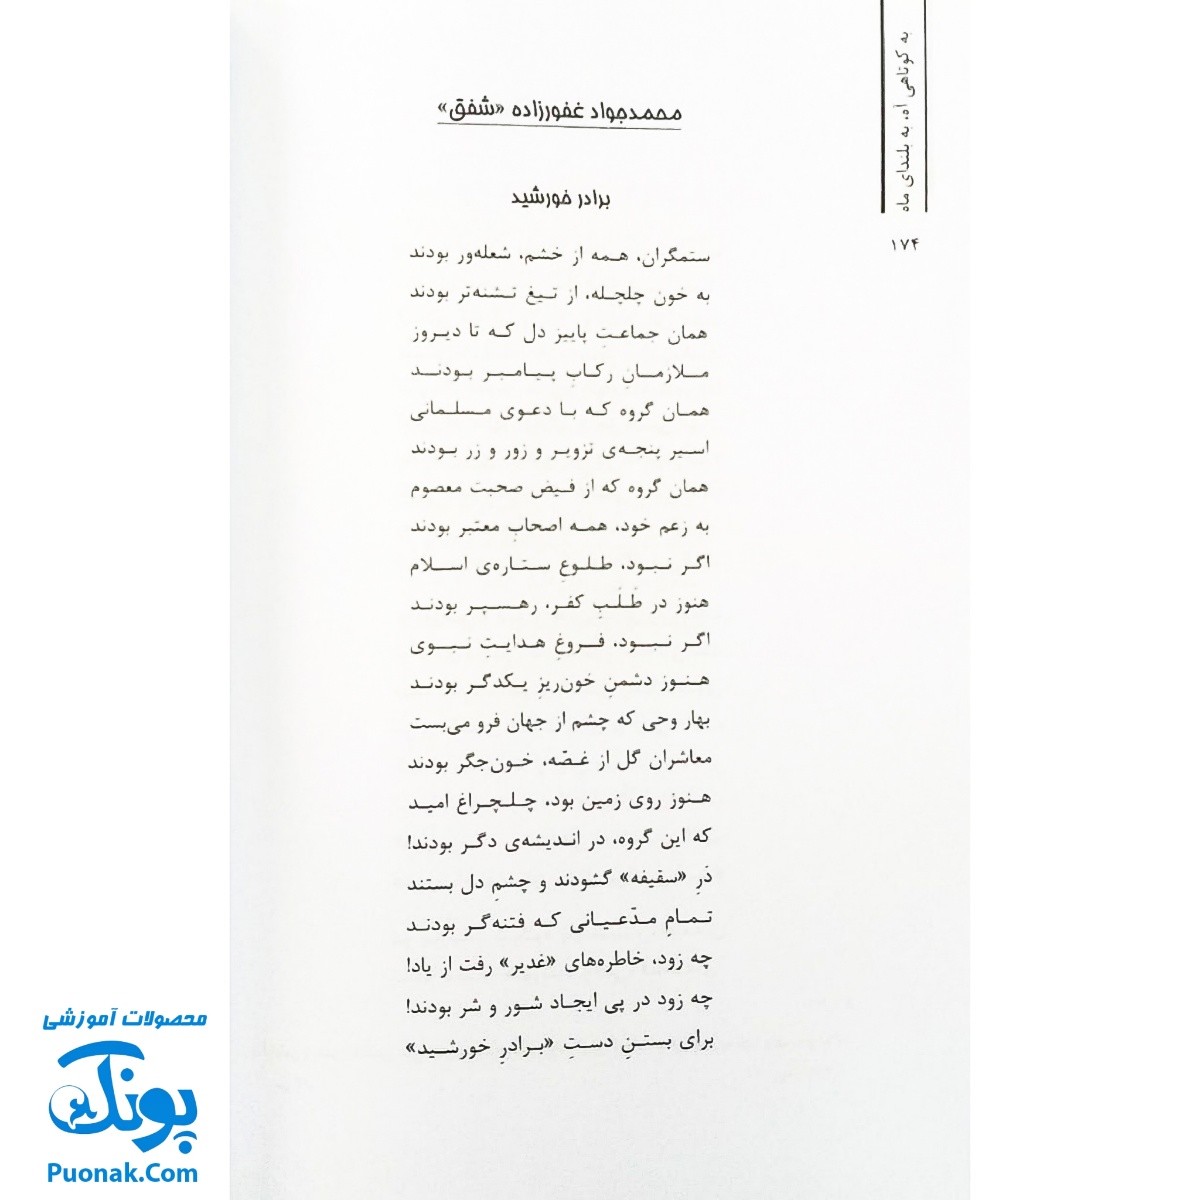 به کوتاهی آه، به بلندای ماه
۱۷۴
محمدجواد غفورزاده «شفق»
برادر خورشید
ستمگران، همه از خشم، شعله‌ور بودند
به خون چلچله، از تیغ تشنه‌تر بودند
همان جماعتِ پاییز دل که تا دیروز
ملازمانِ رکابِ پیامبر بودند
همان گروه که با دعوی مسلمانی
اسیر پنجه‌ی تزویر و زور و زر بودند
همان گروه که از فیض صحبت معصوم
به زعم خود، همه اصحابِ معتبر بودند
اگر نبود، طلوعِ ستاره‌ی اسلام
هنوز در طَلَبِ کفر، رهسپر بودند
اگر نبود، فروغِ هدایتِ نبوی
هنوز دشمنِ خون‌ریزِ یکدگر بودند
بهار وحی که چشم از جهان فرو می‌بست
معاشران گل از غصّه، خون‌جگر بودند
هنوز روی زمین بود، چلچراغ امید
که این گروه، در اندیشه‌ی دگر بودند!
دَرِ «سقیفه» گشودند و چشمِ دل بستند
تمامِ مدّعیانی که فتنه‌گر بودند
چه زود، خاطره‌های «غدیر» رفت از یاد!
چه زود در پی ایجاد شور و شر بودند!
برای بستنِ دستِ «برادرِ خورشید»
محصولات آموزشی
پونک
Puonak.Com